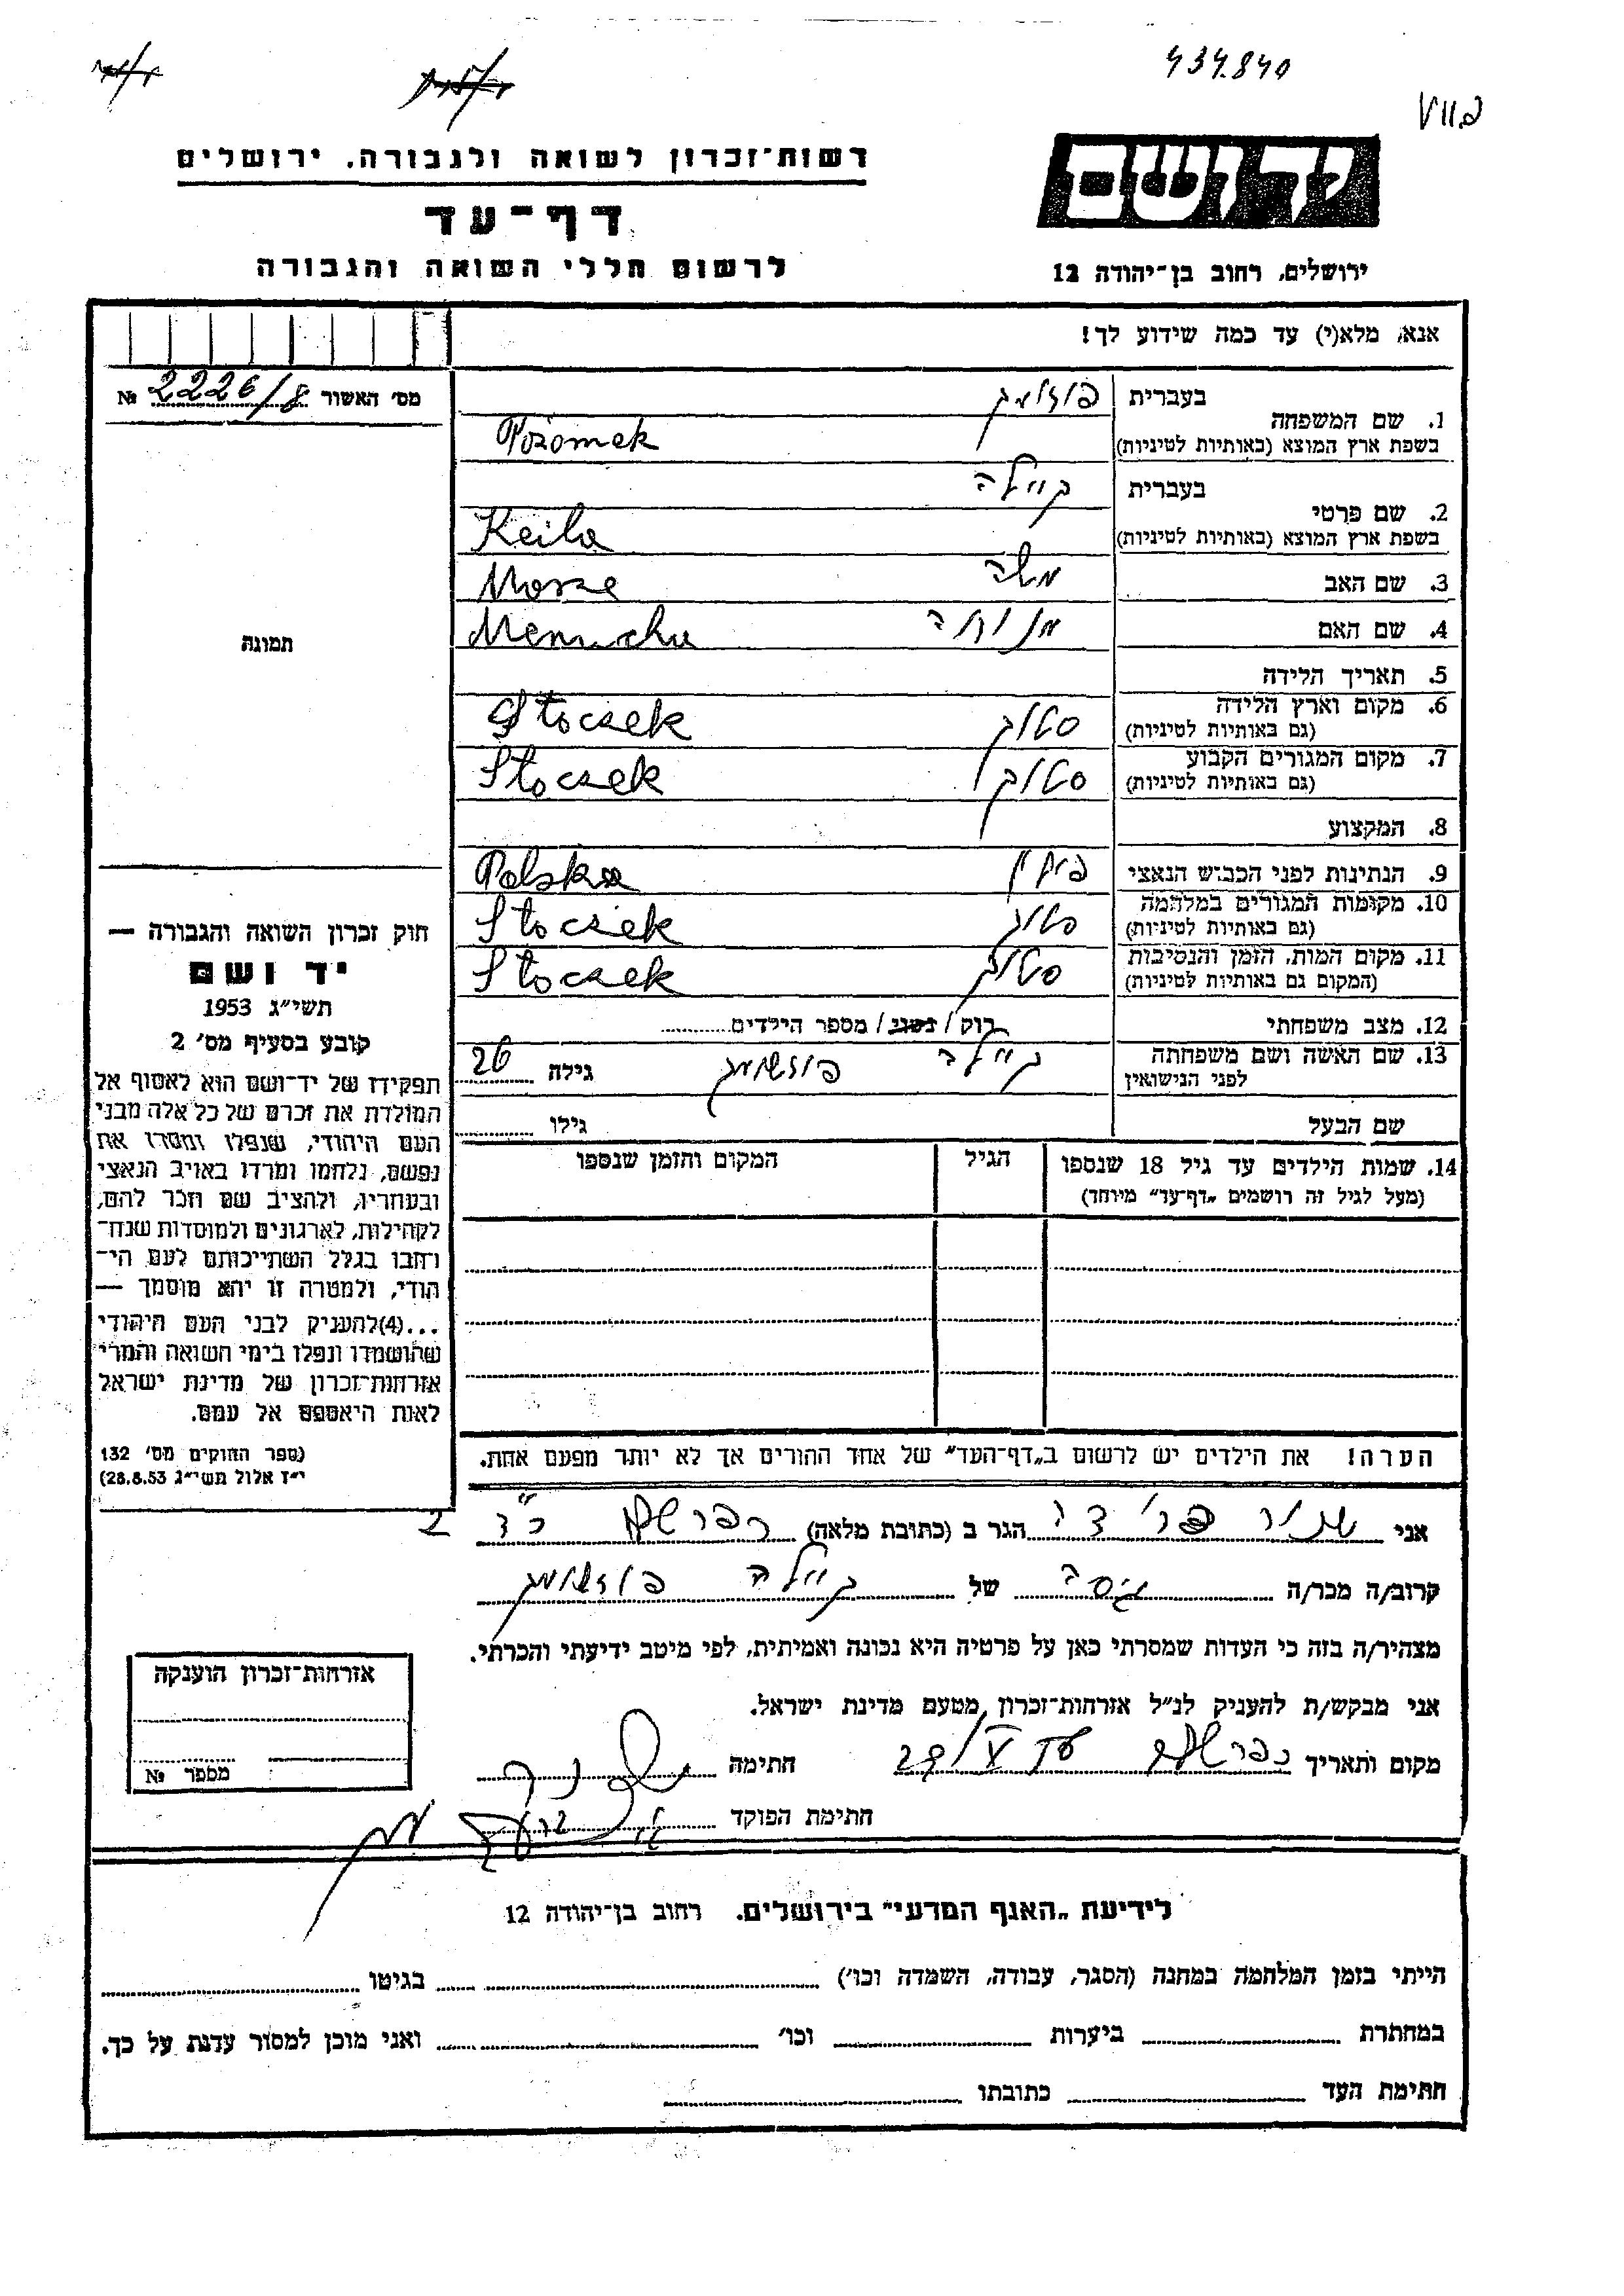 434.840
רשות־זכרון לשואה ולגבורה, ירושלים
יד ושם
דף־עד
לרשום חללי השואה והגבורה
ירושלים, רחוב בן־יהודה 12
אנא, מלא(י) עד כמה שידוע לך!
מס׳ האשור № 2226/8
1. שם המשפחה
בעברית
בשפת ארץ המוצא (באותיות לטיניות) Pożomek
2. שם פרטי
בעברית קיילה
בשפת ארץ המוצא (באותיות לטיניות) Keila
3. שם האב משה Mosze
4. שם האם מנוחה Menucha
5. תאריך הלידה
6. מקום וארץ הלידה
(גם באותיות לטיניות) סטוק Stoczek
7. מקום המגורים הקבוע
(גם באותיות לטיניות) סטוק Stoczek
8. המקצוע
9. הנתינות לפני הכבוש הנאצי פולין Polska
10. מקומות המגורים במלחמה
(גם באותיות לטיניות) סטוק Stoczek
11. מקום המות, הזמן והנסיבות
(המקום גם באותיות לטיניות) סטוק Stoczek
12. מצב משפחתי רוק/נשוי/ מספר הילדים
13. שם האשה ושם משפחתה
לפני הנישואין קיילה פוזשומק גילה 26
שם הבעל גילו
14. שמות הילדים עד גיל 18 שנספו
(מעל לגיל זה רושמים „דף־עד״ מיוחד)
הגיל
המקום והזמן שנספו
תמונה
חוק זכרון השואה והגבורה —
יד ושם
תשי״ג 1953
קובע בסעיף מס׳ 2
תפקידו של יד־ושם הוא לאסוף אל
המולדת את זכרם של כל אלה מבני
העם היהודי, שנפלו ומסרו את
נפשם, נלחמו ומרדו באויב הנאצי
ובעוזריו, ולהציב שם וזכר להם,
לקהילות, לארגונים ולמוסדות שנח־
רבו בגלל השתייכותם לעם הי־
הודי, ולמטרה זו יהא מוסמך —
...(4)להעניק לבני העם היהודי
שהושמדו ונפלו בימי השואה והמרי
אזרחות־זכרון של מדינת ישראל
לאות היאספם אל עמם.
(ספר החוקים מס׳ 132
י״ז אלול תשי״ג 28.8.53)
הערה! את הילדים יש לרשום ב„דף־העד״ של אחד ההורים אך לא יותר מפעם אחת.
אני הגר ב (כתובת מלאה)
קרוב/ה מכר/ה גיסה של קיילה פוזשומק
מצהיר/ה בזה כי העדות שמסרתי כאן על פרטיה היא נכונה ואמיתית, לפי מיטב ידיעתי והכרתי.
אני מבקש/ת להעניק לנ״ל אזרחות־זכרון מטעם מדינת ישראל.
מקום ותאריך חתימה
חתימת הפוקד
אזרחות־זכרון הוענקה
מספר №
לידיעת „האגף המדעי״ בירושלים, רחוב בן־יהודה 12
הייתי בזמן המלחמה במחנה (הסגר, עבודה, השמדה וכו׳) בגיטו
במחתרת ביערות וכו׳ ואני מוכן למסור עדות על כך.
חתימת העד כתובתו